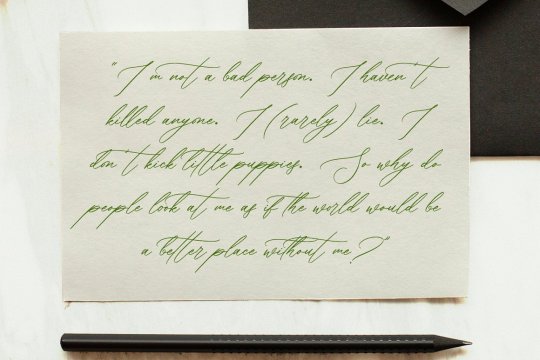 "I'm not a bad person. I haven't
killed anyone. I (rarely) lie. I
don't kick little puppies. So why do
people look at me as if the world would be
a better place without me?"